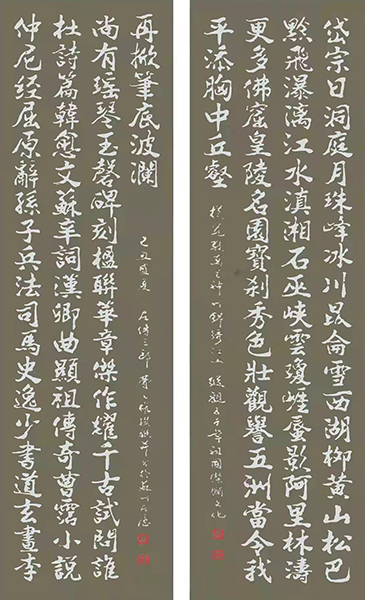 岱宗日洞庭月珠峰冰川昆侖雪西湖柳黄山松巴
黔飛瀑漓江水滇湘石巫峽雲瓊崖蜃影阿里林濤
更多佛窟皇陵名園寶刹秀色壯觀譽五洲當令我
平添胸中丘壑
仲尼经屈原辭孫子兵法司馬史逸少書道玄畫李
杜詩篇韓愈文蘇辛詞漢卿曲顯祖傳奇曹霑小說
尚有瑶琴玉磬碑刻楹聯華章傑作耀千古試問誰
再掀筆底波瀾